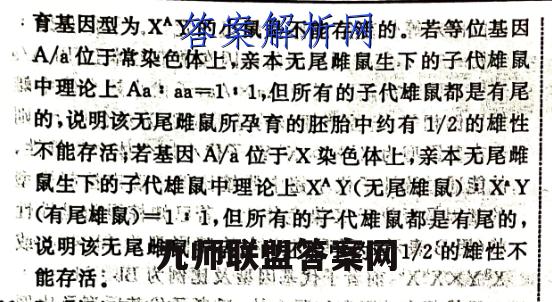 育基因型为XᴬY的小鼠是不能存活的。若等位基因
答案解析网
A/a位于常染色体上,亲本无尾雌鼠生下的子代雄鼠
中理论上Aa∶aa=1∶1,但所有的子代雄鼠都是有尾
的,说明该无尾雌鼠所孕育的胚胎中约有1/2的雄性
不能存活;若基因A/a位于X染色体上,亲本无尾雌
鼠生下的子代雄鼠中理论上XᴬY(无尾雄鼠)∶XᵃY
(有尾雄鼠)=1∶1,但所有的子代雄鼠都是有尾的,
说明该无尾雌鼠 1/2的雄性不
九师联盟答案网
能存活。